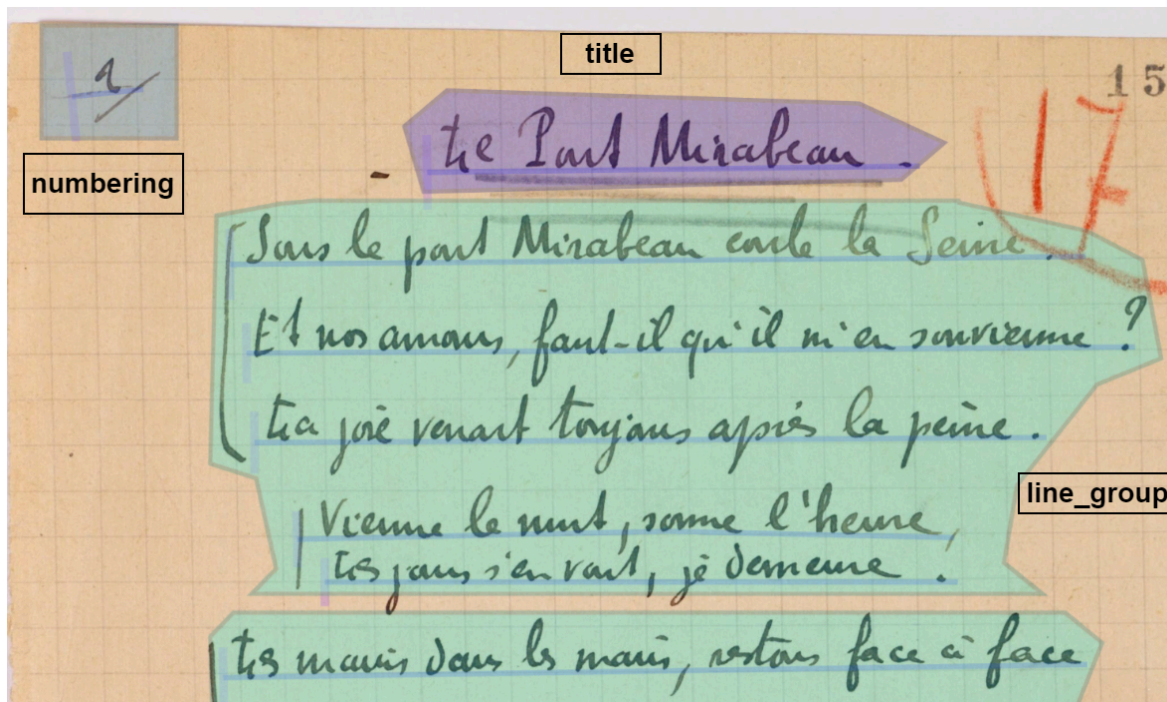 title
15
1/
numbering
17
- Le Pont Mirabeau.
Sous le pont Mirabeau coule la Seine.
Et nos amours, faut-il qu'il m'en souvienne ?
La joie venait toujours après la peine.
line_group
Vienne la nuit, sonne l'heure,
Les jours s'en vont, je demeure.
Les mains dans les mains, restons face à face